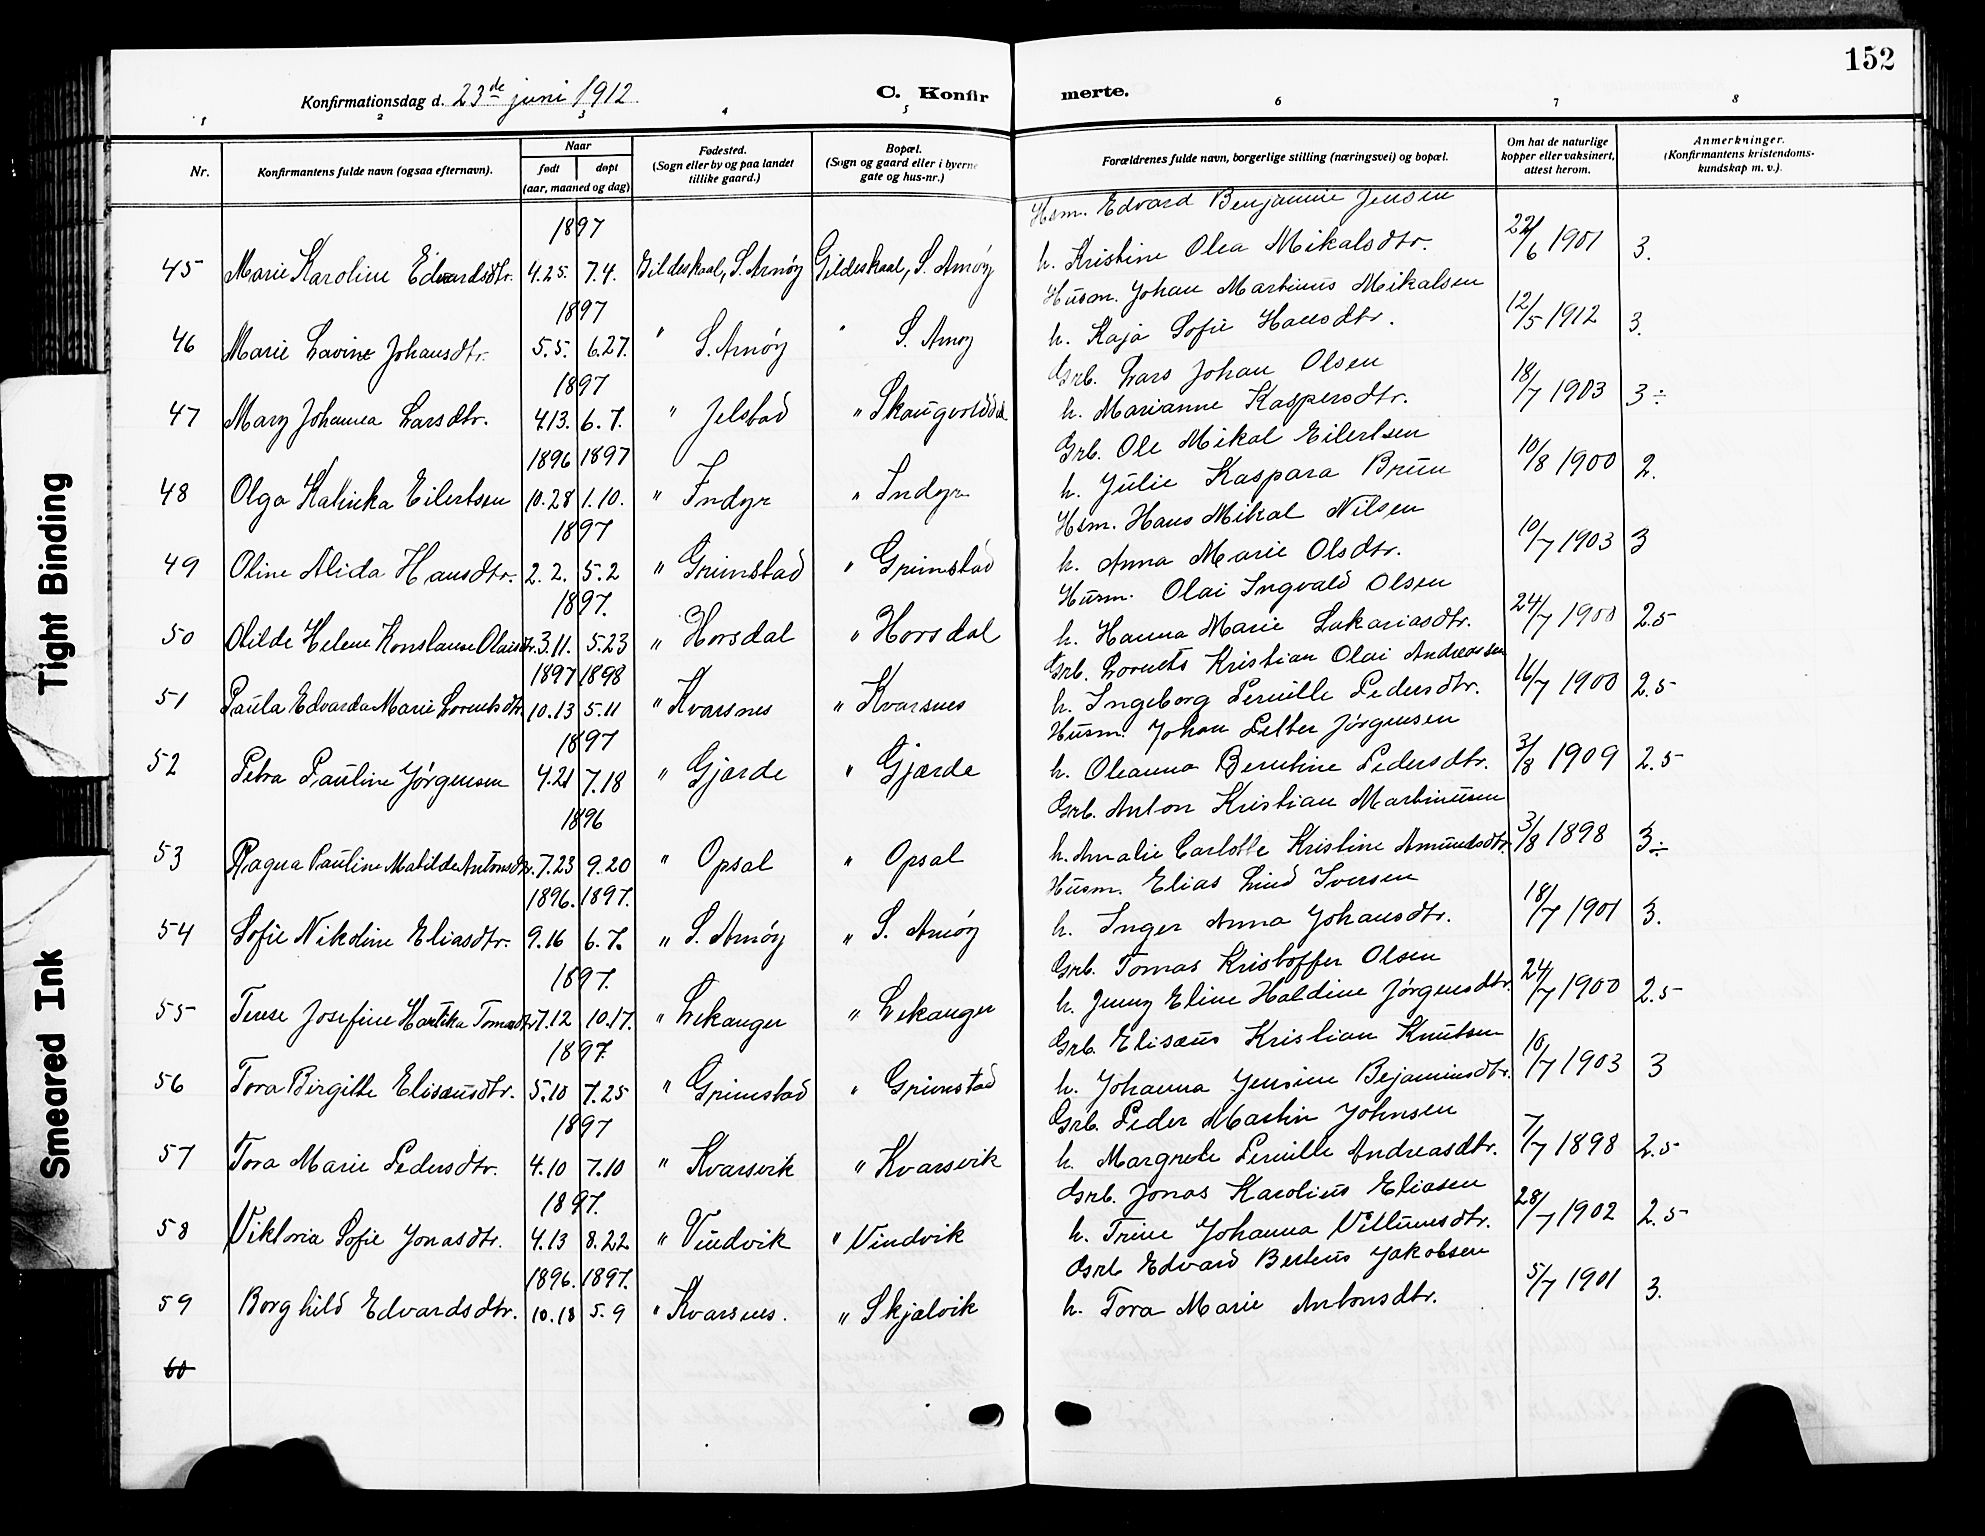 152
Konfirmationsdag d. 23de juni 1912.
C. Konfirmerte.
1 2 3 4 5 6 7 8
Nr.
Konfirmantens fulde navn (ogsaa efternavn).
Naar
født døpt
(aar, maaned og dag)
Fødested.
(Sogn eller by og paa landet
tillike gaard.)
Bopæl.
(Sogn og gaard eller i byerne
gate og hus-nr.)
Forældrenes fulde navn, borgerlige stilling (næringsvei) og bopæl.
Om hat de naturlige
kopper eller vaksinert,
attest herom.
Anmerkninger.
(Konfirmantens kristendoms-
kundskap m. v.).
Hsm. Edvard Benjamin Jensen
1897
45 Marie Karoline Edvardsdtr. 4.25. 7.4. Gildeskaal, S. Arnøy Gildeskaal, S. Arnøy h. Kristine Olea Mikalsdtr. 22/6 1901 3.
Husm. Johan Martinus Mikalsen
1897
46 Marie Lavine Johansdtr. 5.5. 6.27. " S. Arnøy " S. Arnøy h. Kaja Sofie Hansdtr. 12/5 1912 3.
Grb. Lars Johan Olsen
1897
47 Mary Johanna Larsdtr. 4.13. 6.7. " Jelstad " h. Marianne Kaspersdtr. 18/7 1903 3÷
Grb. Ole Mikal Eilertsen
1896 1897
48 Olga Katinka Eilertsen 10.28 1.10. " Indyr " Indyr h. Julie Kaspara Bruun 10/8 1900 2.
Hsm. Hans Mikal Nilsen
1897
49 Oline Alida Hansdtr. 2.2. 5.2 " Grimstad " Grimstad h. Anna Marie Olsdtr. 10/7 1903 3
Husm. Olai Ingvald Olsen
1897.
50 Otilde Helene Konstanse Olaisdtr. 3.11. 5.23 " Horsdal " Horsdal h. Hanna Marie Sakariasdtr. 24/7 1900 2.5
Grb. Lornts Kristian Olai Andreassen
1897 1898
51 Paula Edvarda Marie Lorntsdtr. 10.13 5.11 " Kvarsnes " Kvarsnes h. Ingeborg Pernille Pedersdtr. 16/7 1900 2.5
Husm. Johan Petter Jørgensen
1897
52 Petra Pauline Jørgensen 4.21 7.18 " Gjærde " Gjærde h. Oleanna Berntine Pedersdtr. 3/8 1909 2.5
Grb. Anton Kristian Martinusen
1896
53 Ragna Pauline Matilde Antonsdtr. 7.23 9.20 " Opsal " Opsal h. Amalie Carlotte Kristine Amundsdtr. 3/8 1898 3÷
Husm. Elias Lind Iversen
1896. 1897.
54 Sofie Nikoline Eliasdtr. 9.16 6.7. " S. Arnøy " S. Arnøy h. Inger Anna Johansdtr. 18/7 1901 3.
Grb. Tomas Kristoffer Olsen
1897.
55 Terese Josefine Hartika Tomasdtr 7.12 10.17. " Lekanger " Lekanger h. Jenny Eline Haldine Jørgensdtr. 24/7 1900 2.5
Grb. Elisæus Kristian Knutsen
1897.
56 Tora Birgitte Elisæusdtr. 5.10 7.25 " Grimstad " Grimstad h. Johanna Jensine Bejaminsdtr. 10/7 1903 3
Grb. Peder Martin Johnsen
1897
57 Tora Marie Pedersdtr. 4.10 7.10 " Kvarsvik " Kvarsvik h. Margrete Pernille Andreasdtr. 7/7 1898 2.5
Grb. Jonas Karolius Eliasen
1897.
58 Viktoria Sofie Jonasdtr. 4.13 8.22 " Vindvik " Vindvik h. Trine Johanna Villumsdtr. 28/7 1902 2.5
Grb Edvard Berteus Jakobsen
1896. 1897.
59 Borghild Edvardsdtr. 10.18 5.9 " Kvarsnes. " Skjælvik h. Tora Marie Antonsdtr. 5/7 1901 3.
60
Tight Binding
Smeared Ink